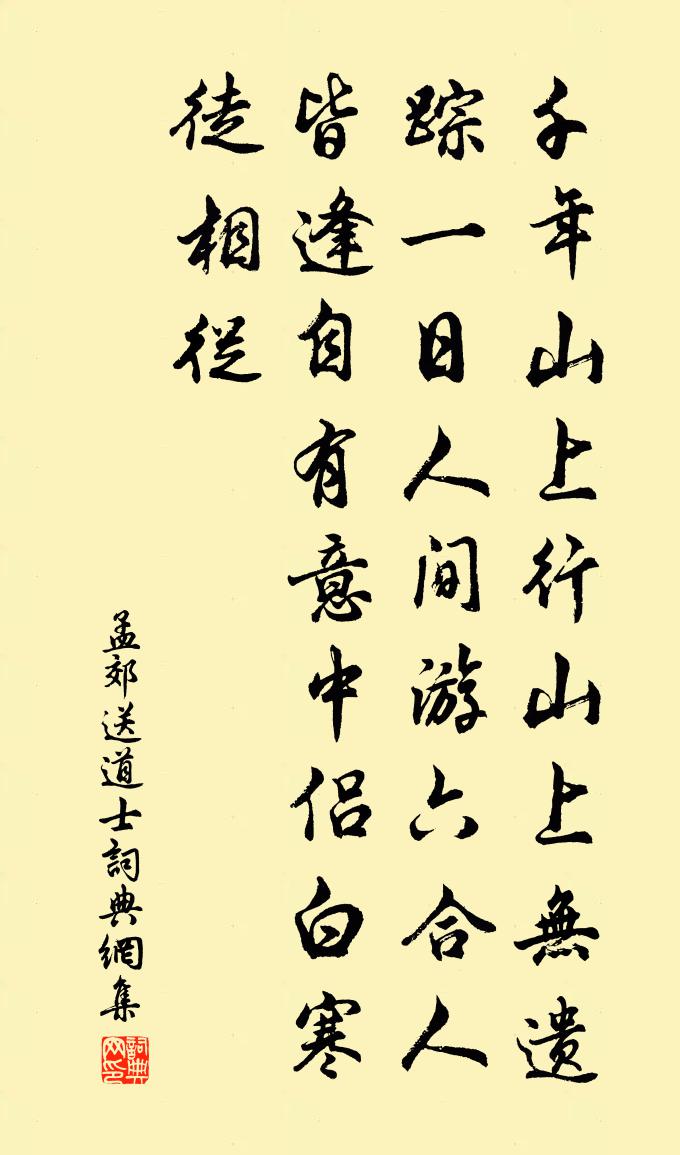 千年山上行山上無遺
踪一日人間游六合人
皆逢自有意中侣白寒
徒相從
孟郊送道士詞典網集
詞典网印